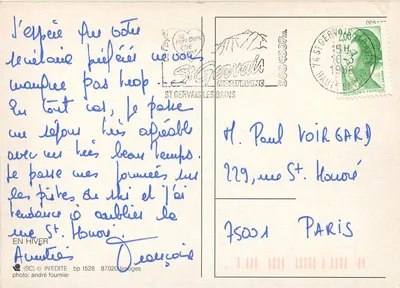 J'espère que votre
secrétaire préférée ne vous
manque pas trop.
En tout cas, je passe
un séjour très agréable
avec un très beau temps.
Je passe mes journées sur
les pistes de ski et j'ai
tendance à oublier la
rue St. Honoré
Amitiés Françoise
EN HIVER
(SC) © IN'EDITE bp 1528 87020 limoges
photo: andré fournier
St Gervais
MONT BLANC
ST GERVAIS LES BAINS
74 ST GERVAIS
15H
1986
M. Paul VOIRGARD
229, rue St. Honoré
75001 PARIS